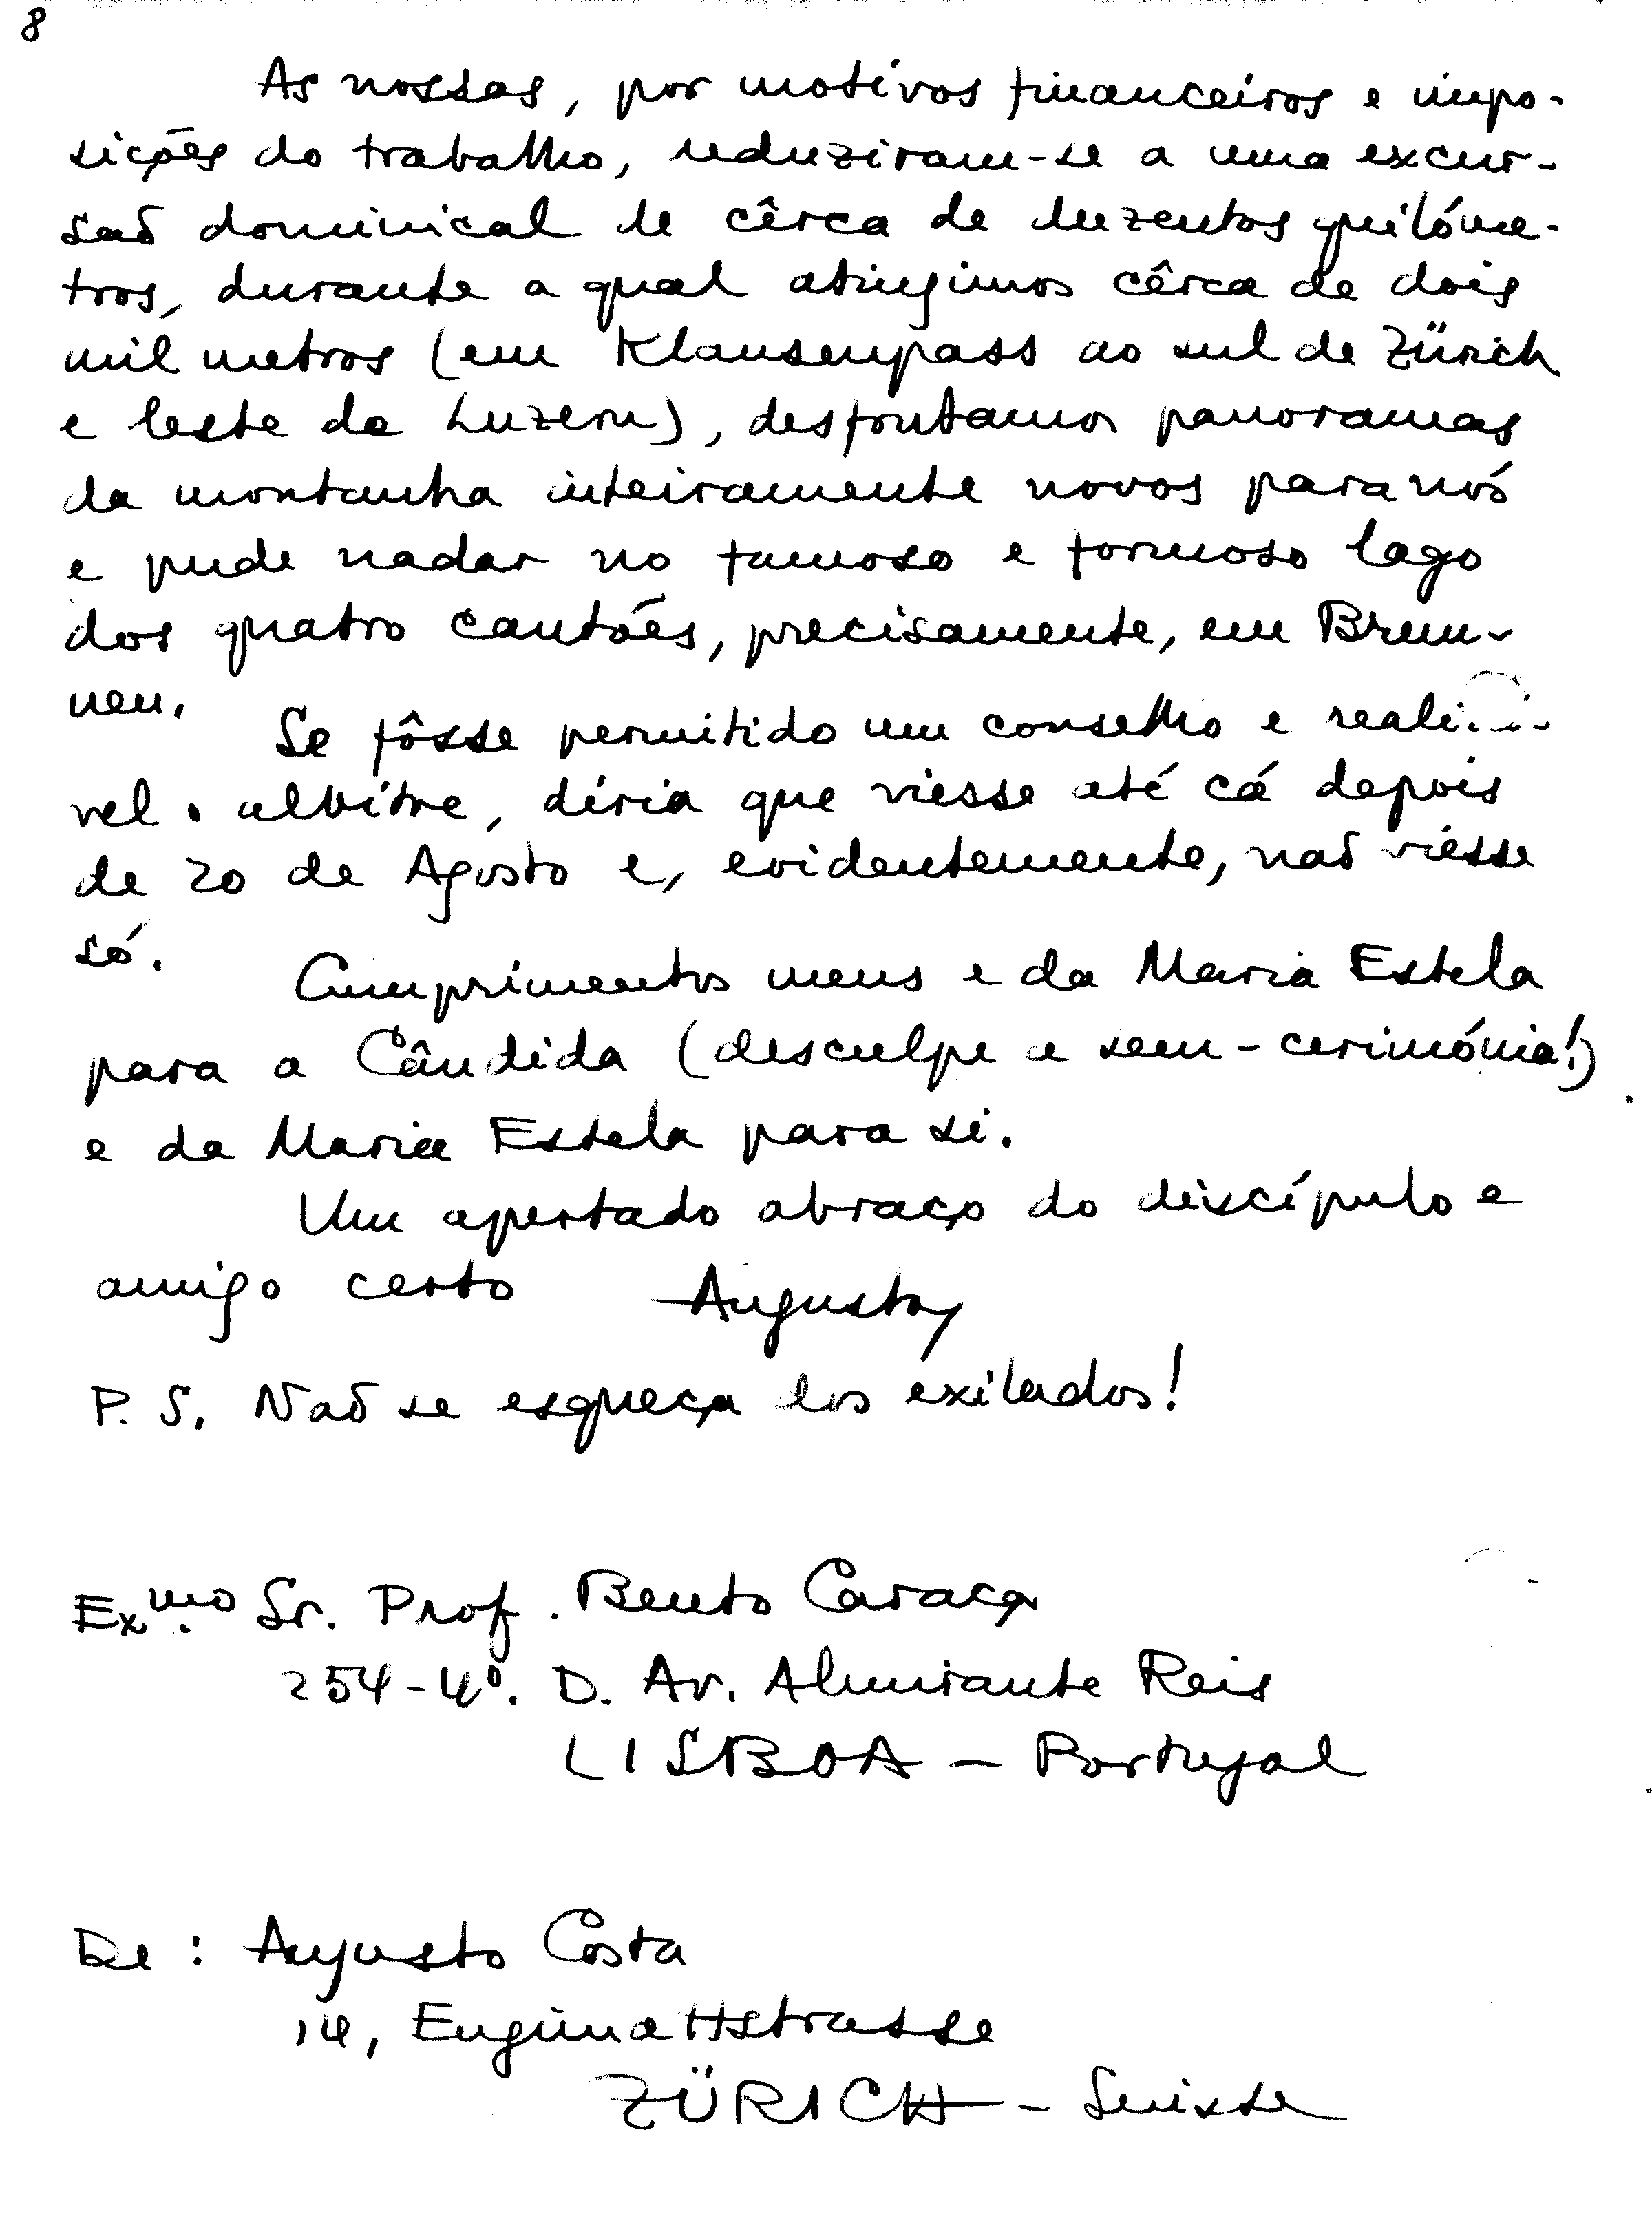 8
As nossas, por motivos financeiros e impo-
sições do trabalho, reduziram-se a uma excur-
saõ dominical de cêrca de duzentos quilóme-
tros, durante a qual atingimos cêrca de dois
mil metros (em Klausenpass ao sul de Zürich
e leste de Luzern), desfrutamos panoramas
da montanha inteiramente novos para nós
e pude nadar no famoso e formoso lago
dos quatro cantões, precisamente, em Brun-
nen.
Se fôsse permitido um conselho e reali
vel o alvitre, diria que viesse até cá depois
de 20 de Agosto e, evidentemente, naõ viesse
só.
Cumprimentos meus e da Maria Estela
para a Cândida (desculpe a sem-cerimónia!)
e da Maria Estela para si.
Um apertado abraço do discípulo e
amigo certo Augusto
P. S. Naõ se esqueça dos exilados!
Exmo. Sr. Prof. Bento Caraça
254-4º. D. Av. Almirante Reis
LISBOA - Portugal
De: Augusto Costa
14, Engimattstrasse
ZÜRICH - Suisse